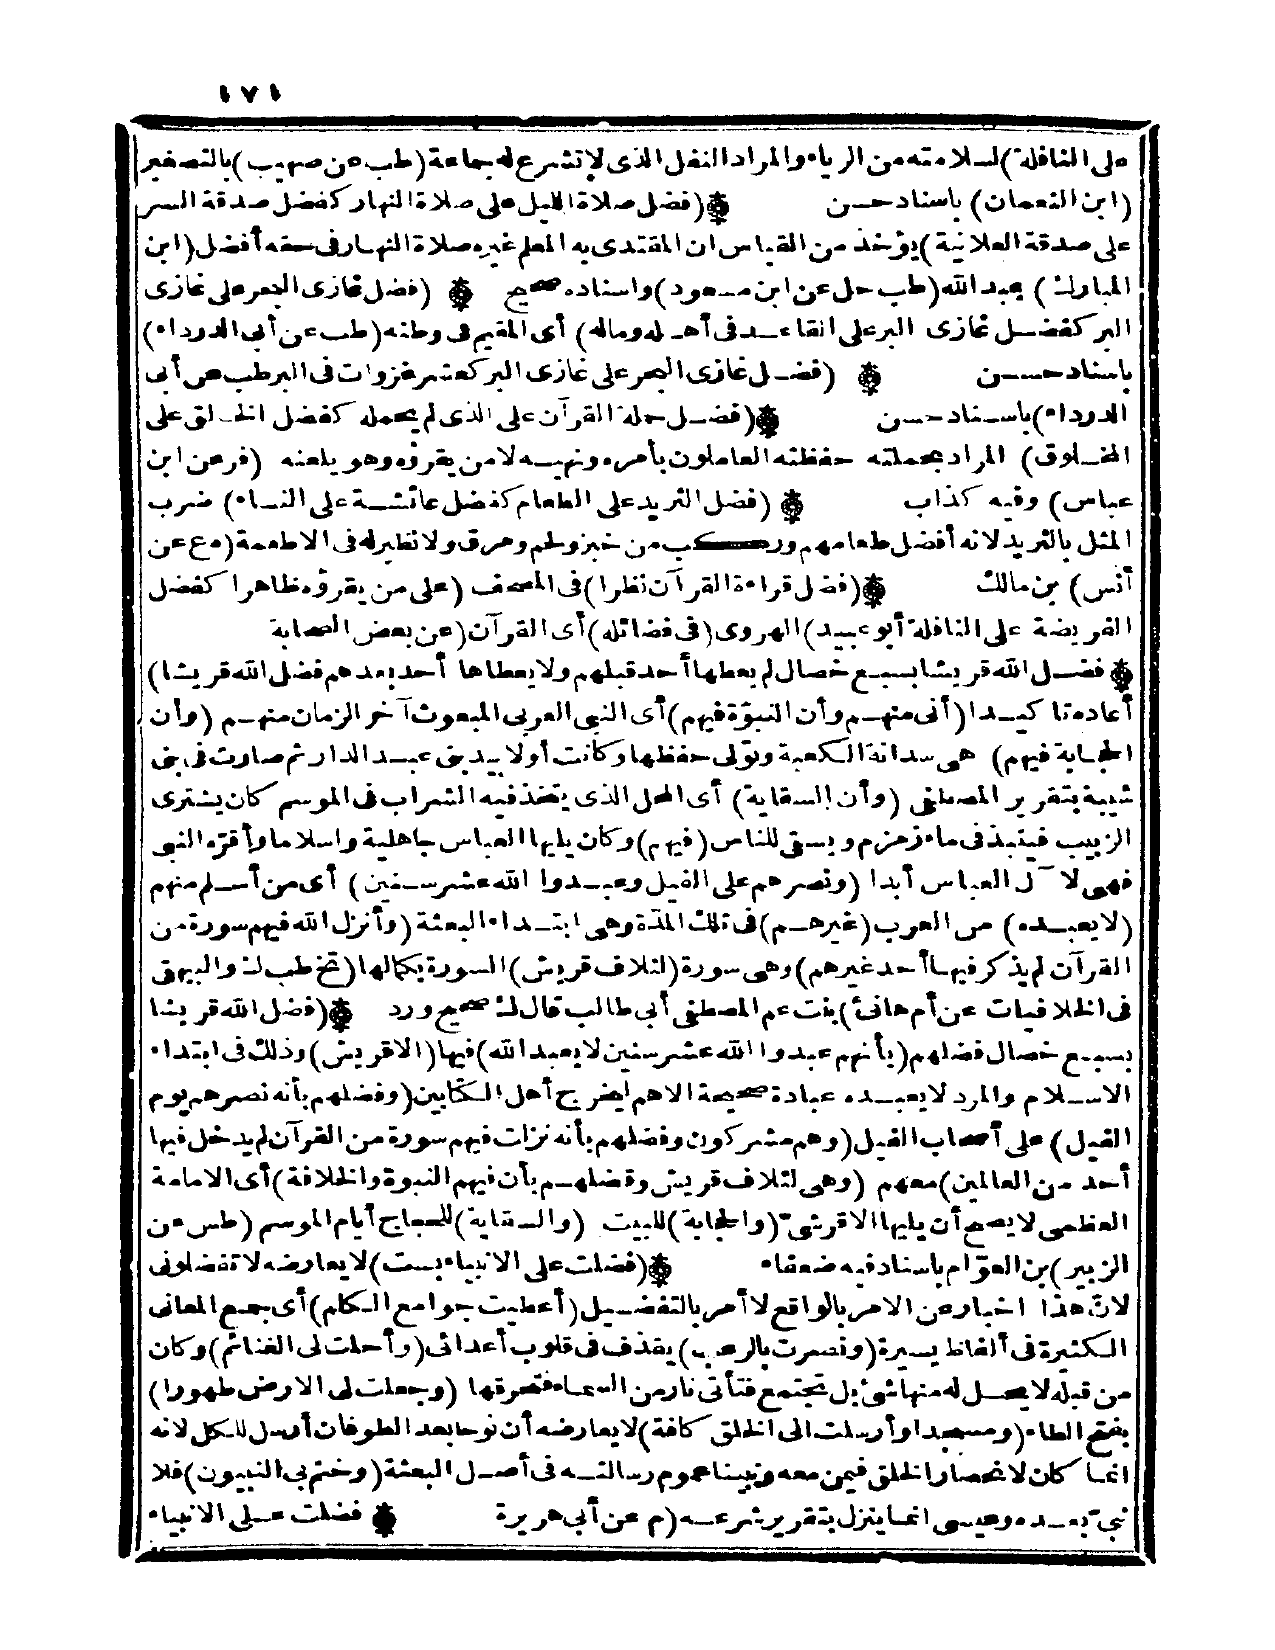 ١٧١
على النافلة) لسلامته من الرياء والمراد النفل الذى لا تشرع له جماعة (طب عن صهيب) بالتصغير
(ابن النعمان) باسناد حسن ۞ (فضل صلاة الليل على صلاة النهار كفضل صدقة السر
على صدقة العلانية) يؤخذ من القياس ان المقتدى به المعلم غيره صلاة النهار فى حقه أفضل (ابن
المبارك) عبد الله (طب حل عن ابن مسعود) واسناده صحيح ۞ (فضل غازى البحر على غازى
البر كفضل غازى البر على القاعد فى أهله وماله) أى المقيم فى وطنه (طب عن أبى الدرداء)
باسناد حسن ۞ (فضل غازى البحر على غازى البر كعشر غزوات فى البر طب عن أبى
الدرداء) باسناد حسن ۞ (فضل حملة القرآن على الذى لم يحمله كفضل الخالق على
المخلوق) المراد بحملته حفظته العاملون بأمره ونهيه لا من يقرؤه وهو يلعنه (فر عن ابن
عباس) وفيه كذاب ۞ (فضل الثريد على الطعام كفضل عائشة على النساء) ضرب
المثل بالثريد لانه أفضل طعامهم وركب من خبز ولحم ومرق ولا نظير له فى الاطعمة (ه ع عن
أنس) بن مالك ۞ (فضل قراءة القرآن نظرا) فى المصحف (على من يقرؤه ظاهرا كفضل
الفريضة على النافلة أبو عبيد) الهروى (فى فضائله) أى القرآن (عن بعض الصحابة
۞ فضل الله قريشا بسبع خصال لم يعطها أحد قبلهم ولا يعطاها أحد بعدهم فضل الله قريشا)
أعاده تا كيدا (أنى منهم وأن النبوّة فيهم) أى النبى العربى المبعوث آخر الزمان منهم (وأن
الحجابة فيهم) هى سدانة الكعبة وتولى حفظها وكانت أولا بيد بنى عبد الدار ثم صارت فى بنى
شيبة بتقرير المصطفى (وأن السقاية) أى المحل الذى يتخذ فيه الشراب فى الموسم كان يشترى
الزبيب فينبذ فى ماء زمزم ويسقى للناس (فيهم) وكان يليها العباس جاهلية واسلاما وأقرّه النبى
فهى لآل العباس أبدا (ونصرهم على الفيل وعبدوا الله عشر سنين) أى من أسلم منهم
(لا يعبده) من العرب (غيرهم) فى تلك المدّة وهى ابتداء البعثة (وأنزل الله فيهم سورة من
القرآن لم يذكر فيها أحد غيرهم) وهى سورة (لئلاف قريش) السورة بكمالها (تخ طب ك والبيهقى
فى الخلافيات عن أم هانئ) بنت عم المصطفى أبى طالب قال ك صحيح ورد ۞ (فضل الله قريشا
بسبع خصال فضلهم (بأنهم عبدوا الله عشر سنين لا يعبد الله) فيها (الا قريش) وذلك فى ابتداء
الاسلام والمرد لا يعبده عبادة صحيحة الا هم ليخرج أهل الكتابين (وفضلهم بأنه نصرهم يوم
الفيل) على أصحاب الفيل (وهم مشركون وفضلهم بأنه نزلت فيهم سورة من القرآن لم يدخل فيها
أحد من العالمين) معهم (وهى لئلاف قريش وفضلهم بأن فيهم النبوة والخلافة) أى الامامة
العظمى لا يصح أن يليها الا قرشىّ (والحجابة) للبيت (والسقاية) للحجاج أيام الموسم (طس عن
الزبير) بن العوّام باسناد فيه ضعفاء ۞ (فضلت على الانبياء بست) لا يعارضه لا تفضلونى
لانّ هذا اخبار عن الامر بالواقع لا أمر بالتفضيل (أعطيت جوامع الكلم) أى جمع المعانى
الكثيرة فى ألفاظ يسيرة (ونصرت بالرعب) يقذف فى قلوب أعدائى (وأحلت لى الغنائم) وكان
من قبله لا يحل له منها شئ بل تجتمع فتأتى نار من السماء فتحرقها (وجعلت لى الارض طهورا)
بفتح الطاء (ومسجدا وأرسلت الى الخلق كافة) لا يعارضه أن نوحا بعد الطوفان أرسل للكل لانه
انما كان لانحصار الخلق فيمن معه ونبينا عموم رسالته فى أصل البعثة (وختم بى النبيون) فلا
نبىّ بعده وعيسى انما ينزل بتقرير شرعه (م عن أبى هريرة ۞ فضلت على الانبياء